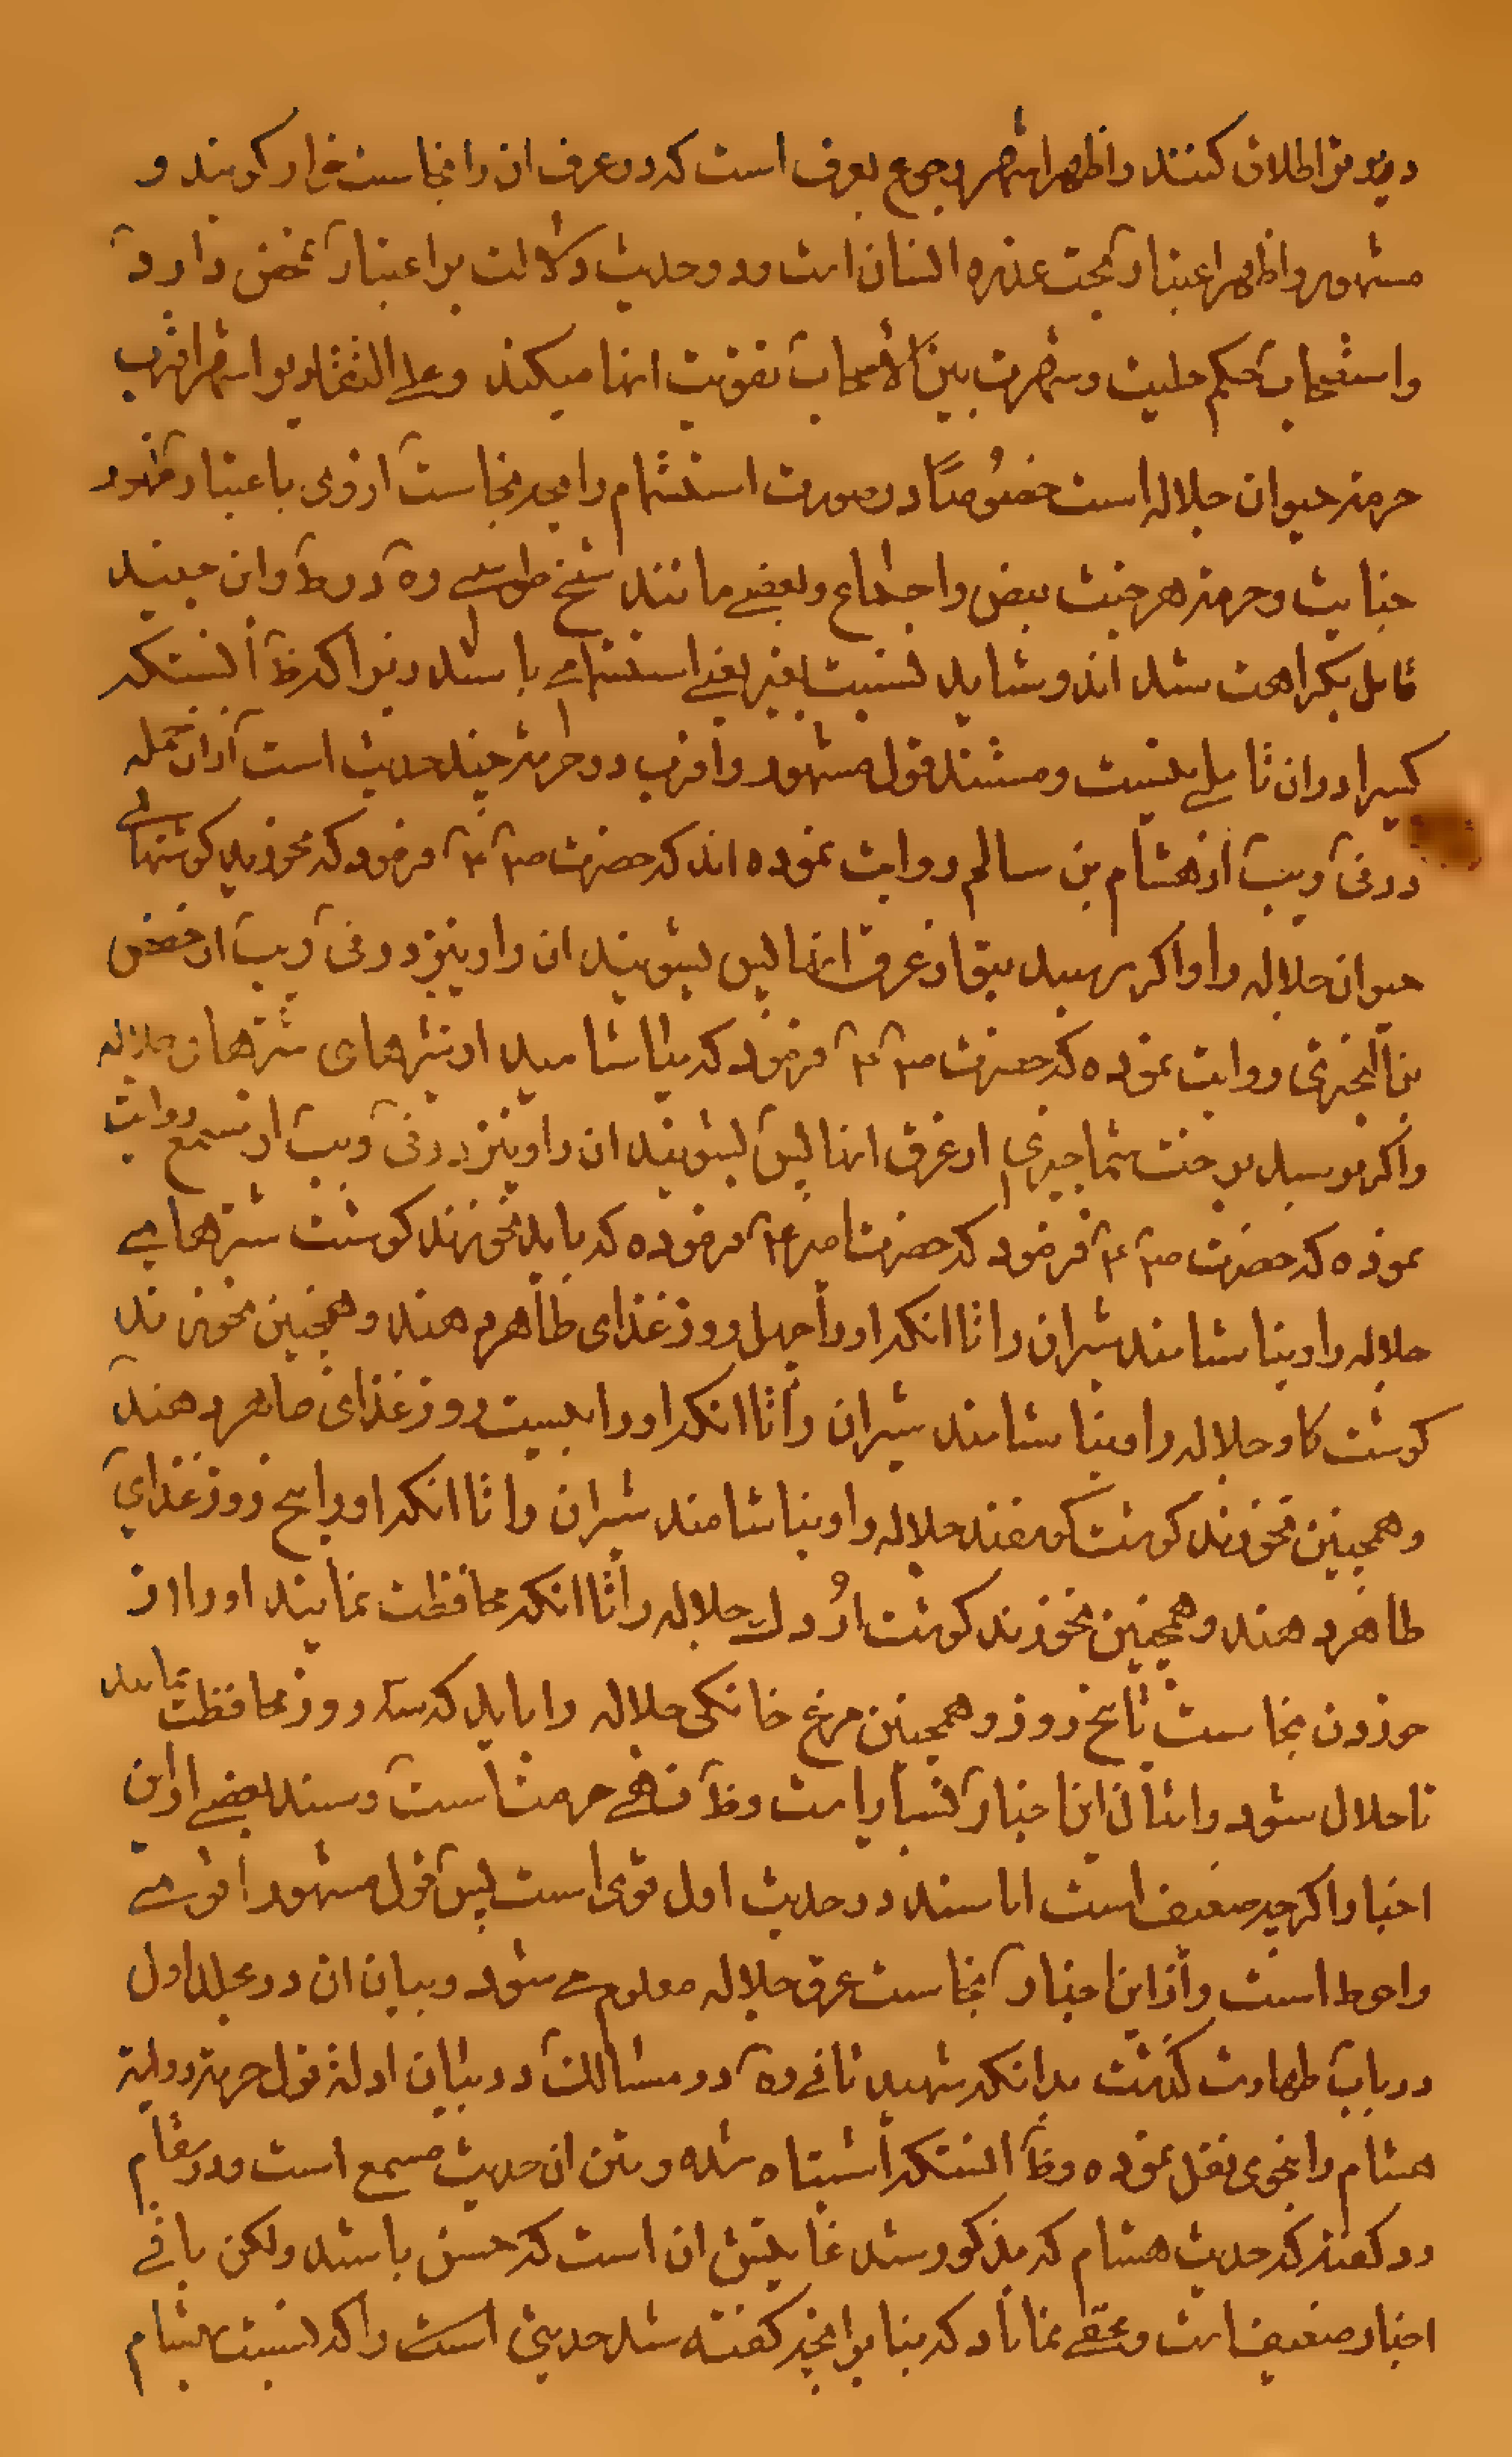 در بدنش اطلاق کنند و اظهر اشهر رجوع بعرف است که در عرف ان را نجاست خوار گویند و
مشهور و اظهر اعتبار تحت عذره انسان است و دو حدیث دلالت بر اعتبار محض دارد
و استصحاب حکم حلیت و شهرت بین الاصحاب تقویت انها میکند و علی التقادیر اشهر اقرب
حرمة حیوان جلاله است خصوصًا در صورت استشمام رایحه نجاست از وی باعتبار ظهور
خباثت و حرمة هر خبیث بنص و اجماع و بعضی مانند شیخ طوسی ره در ط و ابن جنید
قایل بکراهت شده اند و شاید نسبت بغیر بعنی استشمامی باشد زیرا که ظ انستکه
کسیرا در ان تاملی نیست و مستند قول مشهور و اقرب در حرمة چند حدیث است از ان جمله
در فی و یب از هشام بن سالم روایت نموده اند که حضرت ص ع فرمود که نخورید گوشتهای
حیوان جلاله را و اگر برسید بتو از عرق انها پس بشویند ان را و نیز در فی و یب از حفص
بن البختری روایت نموده که حضرت ص ع فرمود که میاشامید از شیرهای شترهای جلاله
و اگر برسد بر خت شما چیزی از عرق انها پس بشویند ان را و نیز در فی و یب از مسمع روایت
نموده که حضرت ص ع فرمود که حضرت امیر ع فرموده که باید نخورند گوشت شترهای
جلاله را و نیاشامند شیران را تا انکه او را چهل روز غذای طاهر دهند و همچنین نخورند
گوشت کاو جلاله را و نیاشامند شیران را تا انکه او را بیست روز غذای طاهر دهند
و همچنین نخورند گوشت گوسفند جلاله را و نیاشامند شیران را تا انکه او را پنج روز غذای
طاهر دهند و همچنین نخورند گوشت اُردک جلاله را تا انکه محافظت نمایند او را از
خوردن نجاست تا پنج روز و همچنین مرغ خانکی جلاله را باید که سه روز محافظت نمایند
تا حلال شود و امثال این اخبار بسیار است و ظ نهی حرمت است و سند بعضی از این
اخبار اگر چه ضعیف است اما سند دو حدیث اول قوی است پس قول مشهور اقوی
و احوط است و از این اخبار نجاست عرق جلاله معلوم می شود و بیان ان در مجلد اول
در باب طهارت گذشت بدانکه شهید ثانی ره در مسالک در بیان ادلهٔ قول حرمة روایة
هشام را بنحوی نقل نموده و ظ انستکه اشتباه شده و متن ان حدیث مسمع است و در مقام
رد گفته که حدیث هشام که مذکور شد غایتش ان است که حسن باشد ولکن باقی
اخبار ضعیف است و مخفی نماناد که بنا بر انچه گفته شد حدیثی است را که نسبت بهشام